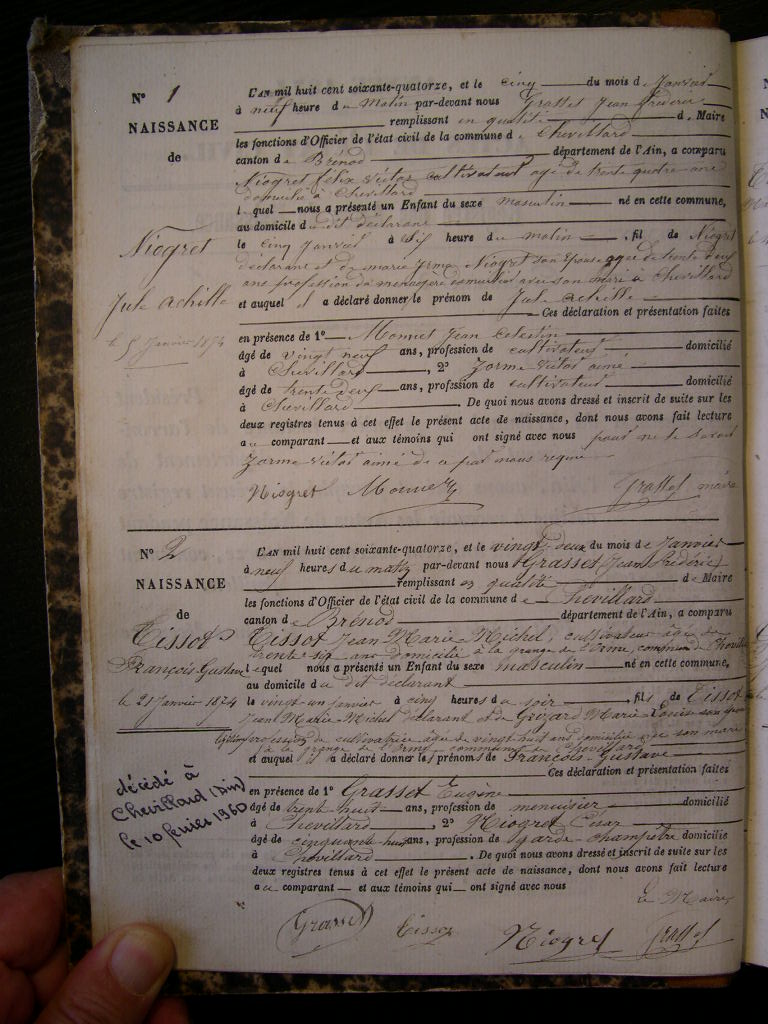 N° 1
NAISSANCE
de
Niogret
Jule Achille
le 5 Janvier 1874
L'AN mil huit cent soixante-quatorze, et le cinq du mois de Janvier
à neuf heure du Matin par-devant nous Grasset Jean Frédéric
remplissant en qualité de Maire
les fonctions d'Officier de l'état civil de la commune de Chevillard
canton de Brénod département de l'Ain, a comparu
Niogret félix victor cultivateur agé de trente quatre ans
domicilié à Chevillard
lequel nous a présenté un Enfant du sexe masculin né en cette commune,
au domicile du dit déclarant
le cinq Janvier à heure du matin, fil de Niogret
déclarant et de marie Niogret son épouse agée de trente deux
ans profession de menagère domicilié avec son mari a Chevillard
et auquel il a déclaré donner le prénom de Jule achille
Ces déclaration et présentation faites
en présence de 1° Monnet Jean Celestin
âgé de vingt neuf ans, profession de cultivateur domicilié
à Chevillard, 2° Jorme victor aimé
âgé de trente deux ans, profession de cultivateur domicilié
à Chevillard. De quoi nous avons dressé et inscrit de suite sur les
deux registres tenus à cet effet le présent acte de naissance, dont nous avons fait lecture
au comparant et aux témoins qui ont signé avec nous pour ne le savoir
Jorme victor aimé de ce par nous requi
Niogret Monnet Grasset maire
N° 2
NAISSANCE
de
Tissot
François Gustave
le 21 Janvier 1874
décédé à
Chevillard (Ain)
le 10 février 1960
L'AN mil huit cent soixante-quatorze, et le vingt-deux du mois de Janvier
à neuf heures du matin par-devant nous Grasset, Jean Frédéric
remplissant en qualité de Maire
les fonctions d'Officier de l'état civil de la commune de Chevillard
canton de Brénod département de l'Ain, a comparu
Tissot Jean Marie Michel, cultivateur âgé de
trente six ans domicilié à la grange de l'Orme, commune de Chevillard
lequel nous a présenté un Enfant du sexe masculin né en cette commune,
au domicile du dit déclarant
le vingt-un janvier à cinq heures du soir, fils de Tissot
Jean Marie Michel déclarant et de Marie Louise son épouse
profession de cultivatrice âgée de vingt huit ans domiciliée avec son mari
à la grange de l'Orme commune de Chevillard
et auquel il a déclaré donner les prénoms de François Gustave
Ces déclaration et présentation faites
en présence de 1° Grasset Eugène
âgé de trente huit ans, profession de menuisier domicilié
à Chevillard, 2° Niogret César
âgé de cinquante huit ans, profession de garde-champêtre domicilié
à Chevillard. De quoi nous avons dressé et inscrit de suite sur les
deux registres tenus à cet effet le présent acte de naissance, dont nous avons fait lecture
au comparant et aux témoins qui ont signé avec nous
Le Maire
Grasset Tissot Niogret Grasset